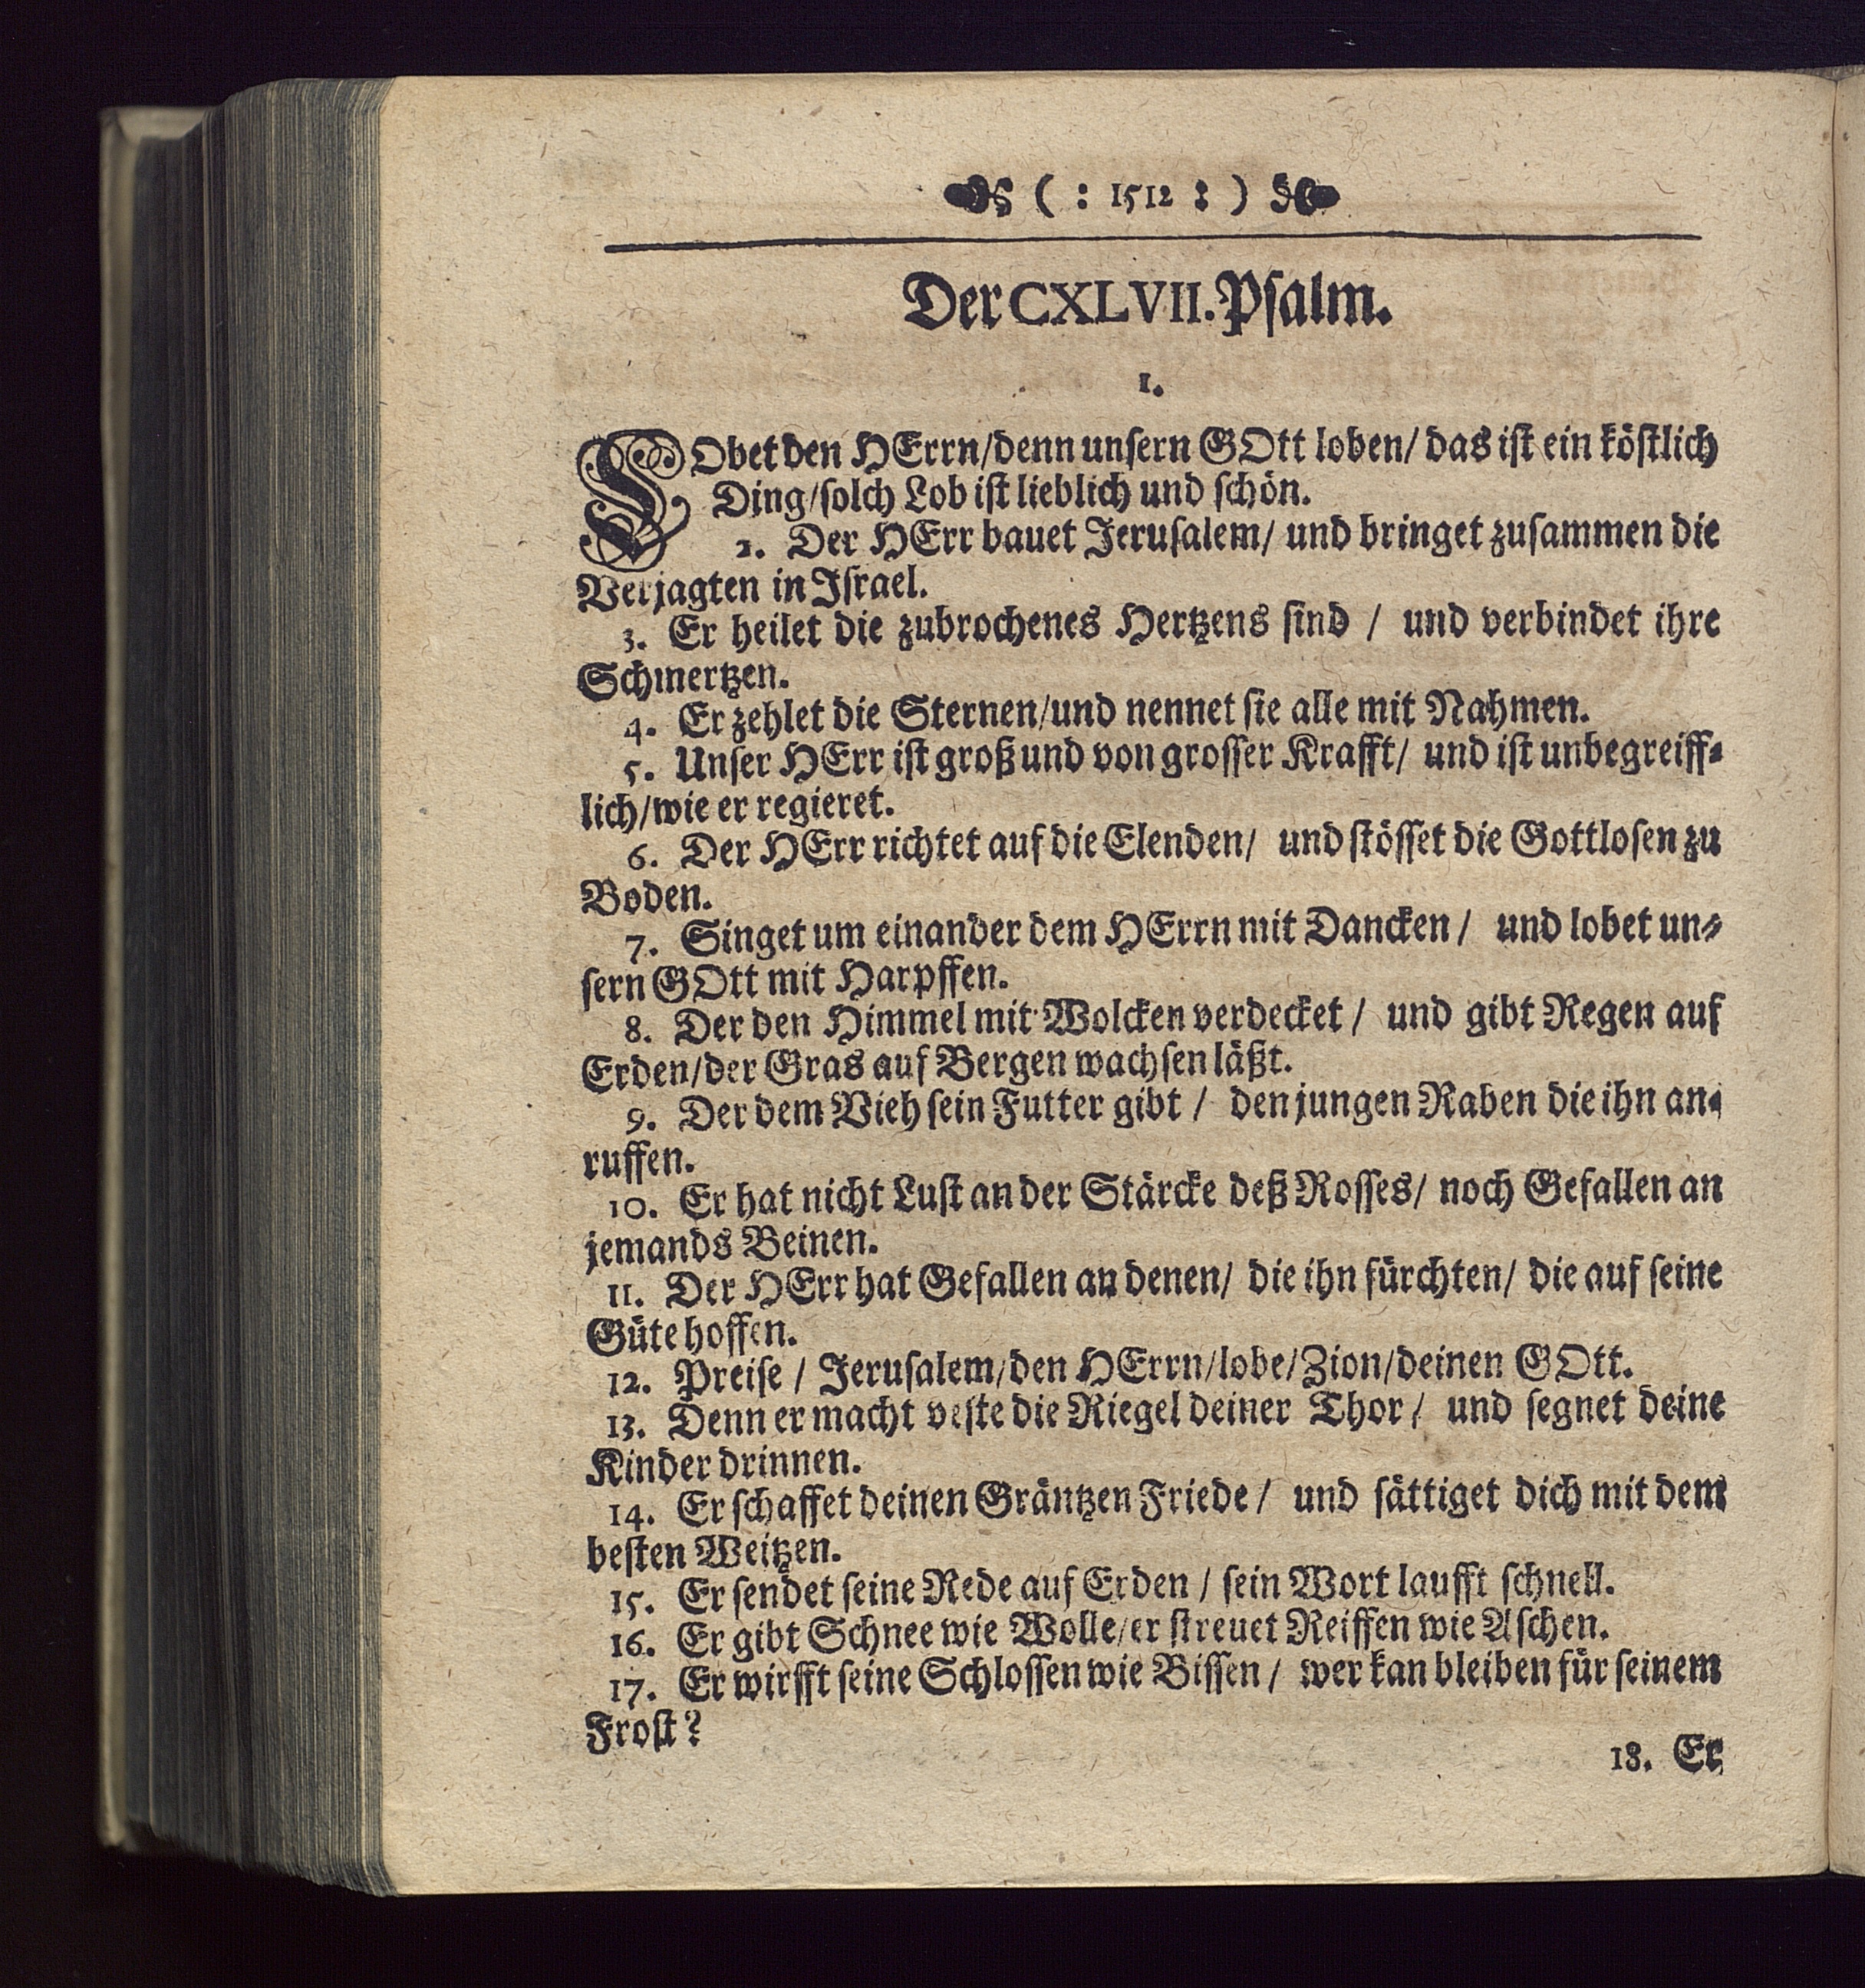 ( : 1512 : )
Der CXLVII. Psalm.
1.
LObet den HErrn/denn unsern GOtt loben/ das ist ein köstlich
Ding/solch Lob ist lieblich und schön.
2. Der HErr bauet Jerusalem/ und bringet zusammen die
Verjagten in Israel.
3. Er heilet die zubrochenes Hertzens sind / und verbindet ihre
Schmertzen.
4. Er zehlet die Sternen/und nennet sie alle mit Nahmen.
5. Unser HErr ist groß und von grosser Krafft/ und ist unbegreiff-
lich/wie er regieret.
6. Der HErr richtet auf die Elenden/ und stösset die Gottlosen zu
Boden.
7. Singet um einander dem HErrn mit Dancken / und lobet un-
sern GOtt mit Harpffen.
8. Der den Himmel mit Wolcken verdecket / und gibt Regen auf
Erden/der Gras auf Bergen wachsen läßt.
9. Der dem Vieh sein Futter gibt / den jungen Raben die ihn an-
ruffen.
10. Er hat nicht Lust an der Stärcke deß Rosses/ noch Gefallen an
jemands Beinen.
11. Der HErr hat Gefallen an denen/ die ihn fürchten/ die auf seine
Güte hoffen.
12. Preise / Jerusalem/den HErrn/lobe/Zion/deinen GOtt.
13. Denn er macht veste die Riegel deiner Thor / und segnet deine
Kinder drinnen.
14. Er schaffet deinen Gräntzen Friede / und sättiget dich mit dem
besten Weitzen.
15. Er sendet seine Rede auf Erden / sein Wort laufft schnell.
16. Er gibt Schnee wie Wolle/er streuet Reiffen wie Aschen.
17. Er wirfft seine Schlossen wie Bissen / wer kan bleiben für seinem
Frost?
18. Er